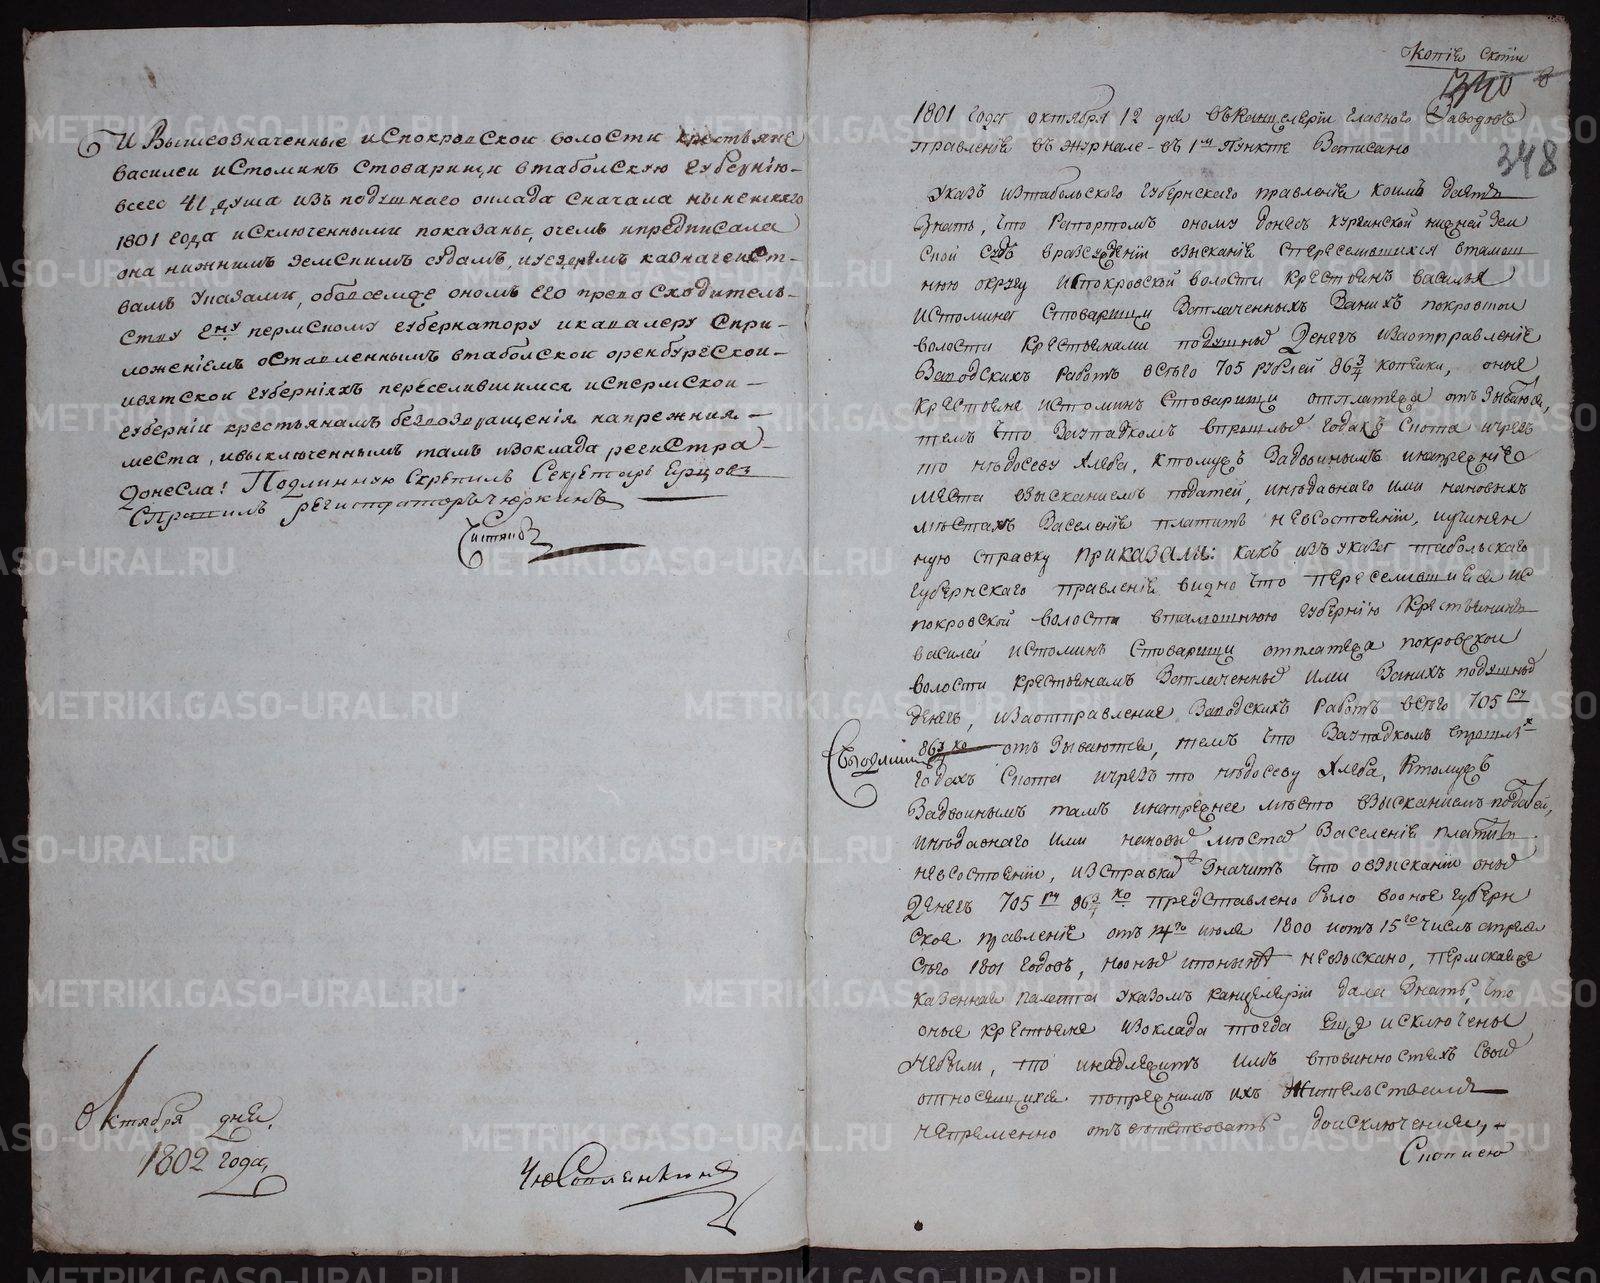 И Вышеозначенные испокровской волости крестьяне
василеи истоминъ стоварищи втабольскую губернїю
всего 41 душа изъ подушнаго оклада сначала нынешняго
1801 года исключенными показаны, очемъ ипредписала
она нижнимъ земскимъ судамъ, иуезднымъ казначейст-
вамъ указами, обовсемже ономъ его превосходитель-
ству ему пермскому губернатору икавалеру спри-
ложенїемъ оставленнымъ втабольской оренбургской
ивятской губернїяхъ переселившимся испермской
губернїи крестьянамъ безвозвращенїя напрежния
места, ивыключеннымъ тамъ изоклада регистра
донесла! Подлинную Скрепилъ Секретарь
Справилъ регистраторъ чюркинъ
Октября дня,
1802 года,
Копїя скопїи
340
348
1801 года октября 12 дня въканцелярїи главного Заводовъ
правленїя въ журнале въ 1м пункте Записано
Указъ изтабольского губернского правленїя коимъ даетъ
знать, что Рапортомъ оному донесъ курганской нижней зем
ской судъ вразсужденїи взысканїя спереселившихся втамош
нюю округу ИспокроВской волости крестьянъ василья
Истомина стоварищи Заплаченныхъ Занихъ покровской
волости крестьянами подушныхъ Денегъ изаотправленїе
Заводскихъ работъ всего 705 рублей 86 3/4 копейки, оные
крестьяне истоминъ стоварищи отплатежа отъзываются,
темъ что Заупадкомъ впрошлыхъ годахъ скота ичрезъ
то недосеву хлеба, ктомужъ Задвоинымъ инапрежнїе
места взысканиемъ податей, инедавнаго ими нановыхъ
местахъ Заселенїе платить невсостоянїи, иучинен
ную справку приказали: какъ изъ указа табольскаго
губернскаго правленїя видно что переселившиеся ис
покровской волости втамошнюю губернїю крестьянинъ
василей истоминъ стоварищи отплатежа покровской
волости крестьянамъ Заплаченныхъ ими Занихъ подушныхъ
денегъ, изаотправление Заводскихъ работъ всего 705 ру
86 3/4 ко отъзываются, темъ что Заупадкомъ впрошлы
годахъ скота ичрезъ то недосеву хлеба, ктомужъ
Задвоинымъ тамъ инапрежнее место взысканиемъ податей,
инедавнаго ими нановы места Заселенїе платить
невсостоянїи, изсправки Значитъ что овзысканїи оныхъ
Денегъ 705 ру 86 3/4 ко представлено было вооное губерн
ское правленїе отъ 14го июля 1800 иотъ 15го числъ апреля
сего 1801 годовъ, нооныя ипоныне невзыскано, пермскаяже
казенная палата указомъ канцелярїи дала знать, что
оные крестьяне изоклада тогда еще исключены
небыли, то инадлежитъ имъ вповинностяхъ своихъ
относящихся попрежнимъ ихъ жительствамъ
непременно отъветствовать доисключения,
Скопиею